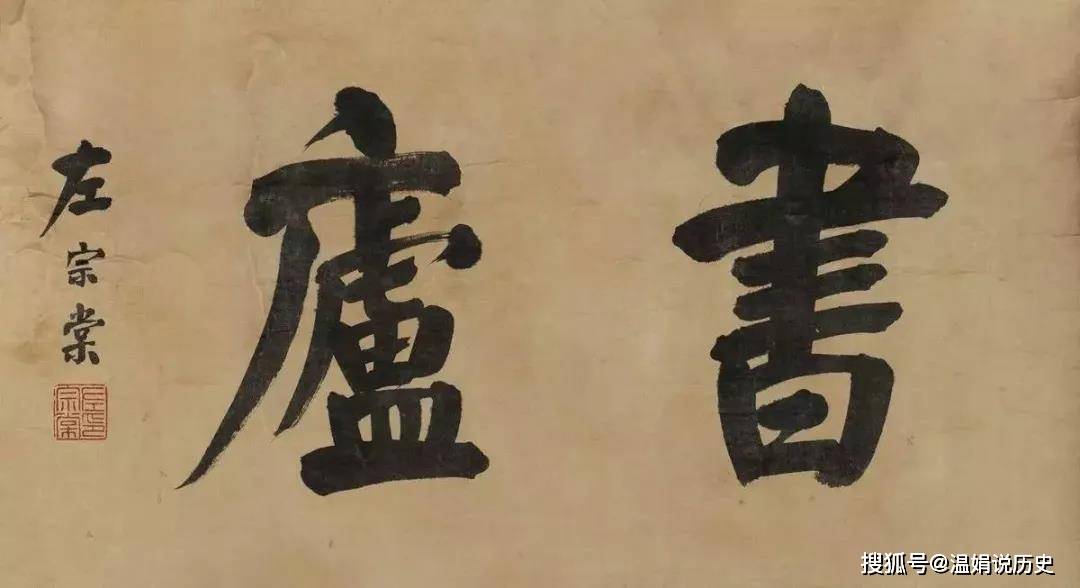 書廬
左宗棠
左宗棠印
搜狐号@温娟说历史